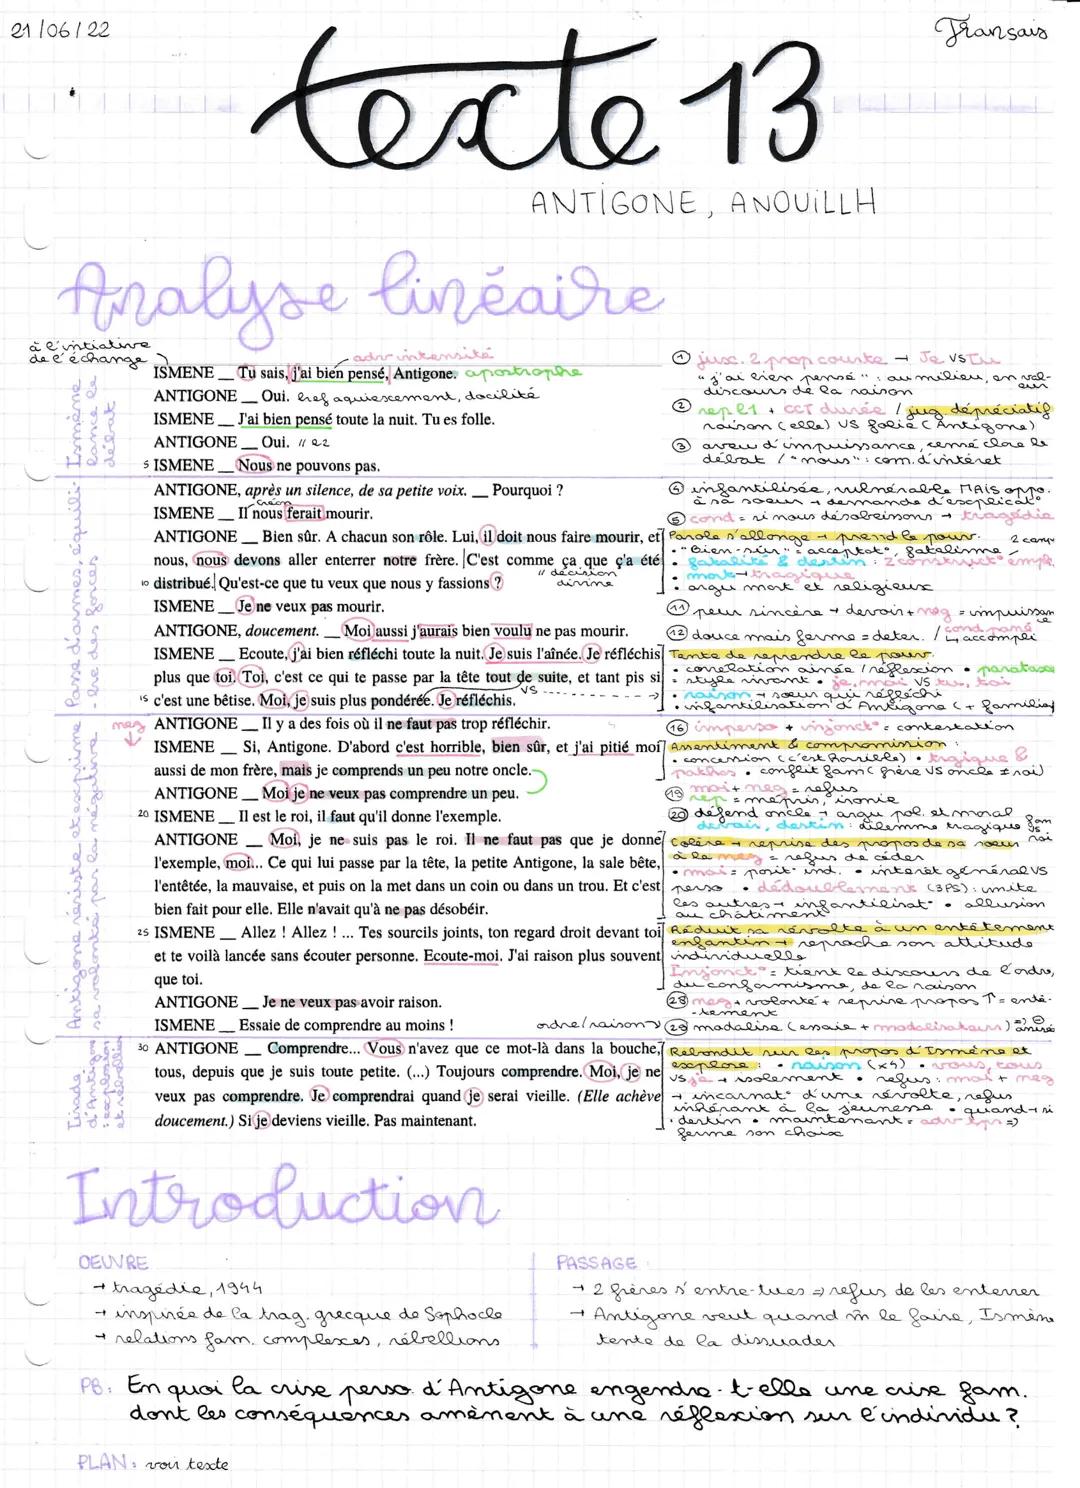 21/06/22
Français
texte 13
ANTIGONE, ANOUILLH
Analyse linéaire
à l'initiative
de l'échange
adv intensité
ISMENE __ Tu sais, j'ai bien pensé, Antigone. apostrophe
ANTIGONE __ Oui. bref aquiescement, docilité
ISMENE __ J'ai bien pensé toute la nuit. Tu es folle.
ANTIGONE __ Oui. // l2
5 ISMENE __ Nous ne pouvons pas.
Ismène
lance le
débat
① jux. 2 prop courte → Je VS Tu
"j'ai bien pensé" : au milieu, en val-
eur
discours de la raison
② rep l1 + CCT durée / jug dépréciatif
raison (elle) VS folie (Antigone)
③ aveu d'impuissance, semé clore le
débat / "nous" : com. d'intéret
ANTIGONE, après un silence, de sa petite voix. __ Pourquoi ?
Créon
ISMENE __ Il nous ferait mourir.
ANTIGONE __ Bien sûr. A chacun son rôle. Lui, il doit nous faire mourir, et
nous, nous devons aller enterrer notre frère. C'est comme ça que ç'a été
10 distribué. Qu'est-ce que tu veux que nous y fassions ?
" décision
divine
ISMENE __ Je ne veux pas mourir.
ANTIGONE, doucement. __ Moi aussi j'aurais bien voulu ne pas mourir.
ISMENE __ Ecoute, j'ai bien réfléchi toute la nuit. Je suis l'aînée. Je réfléchis
plus que toi. Toi, c'est ce qui te passe par la tête tout de suite, et tant pis si
15 c'est une bêtise. Moi, je suis plus pondérée. Je réfléchis.
VS
Passe d'armes, équili-
-bre des forces
④ infantilisée, vulnérable MAIS oppo.
à sa soeur → demande d'explicat°
⑤ cond = si nous désobeissons → tragédie
Parole s'allonge → prend le pouv.
• "Bien sûr" = acceptat°, fatalisme
• fatalité & destin : 2 construct° emph.
• mort → tragique
• argu mort et religieux
⑪ peur sincère → devoir + nég = impuissan
ce
⑫ douce mais ferme = deter. / cond passé
accompli
Tente de reprendre le pouv.
• corrélation ainée / réflexion • parataxe
= style vivant • je, moi VS tu, toi
• raison → soeur qui réfléchi
• infantilisation d'Antigone (+ familier)
ANTIGONE __ Il y a des fois où il ne faut pas trop réfléchir.
ISMENE __ Si, Antigone. D'abord c'est horrible, bien sûr, et j'ai pitié moi
aussi de mon frère, mais je comprends un peu notre oncle.
ANTIGONE __ Moi je ne veux pas comprendre un peu.
20 ISMENE __ Il est le roi, il faut qu'il donne l'exemple.
ANTIGONE __ Moi, je ne suis pas le roi. Il ne faut pas que je donne
l'exemple, moi... Ce qui lui passe par la tête, la petite Antigone, la sale bête,
l'entêtée, la mauvaise, et puis on la met dans un coin ou dans un trou. Et c'est
bien fait pour elle. Elle n'avait qu'à ne pas désobéir.
25 ISMENE __ Allez ! Allez ! ... Tes sourcils joints, ton regard droit devant toi
et te voilà lancée sans écouter personne. Ecoute-moi. J'ai raison plus souvent
que toi.
ANTIGONE __ Je ne veux pas avoir raison.
ISMENE __ Essaie de comprendre au moins !
ordre/raison
nég
Antigone résiste et exprime
sa volonté par la négative
⑯ imperso + injonct° = contestation
Assentiment & compromission :
• concession (c'est horrible) • tragique &
pathos • conflit fam (frère VS oncle ≠ roi)
⑲ moi + nég = refus
rep = mépris, ironie
⑳ défend oncle → argu pol. et moral
devoir, destin : dilemme tragique
fam
VS
roi
Colère → reprise des propos de sa soeur
à la nég = refus de céder
• moi = posit° ind. • intéret général VS
perso • dédoublement (3PS) : imite
les autres → infantilisat° • allusion
au châtiment
Réduit sa révolte à un entêtement
enfantin → reproche son attitude
individuelle
Injonct° = tient le discours de l'ordre,
du conformisme, de la raison
㉘ nég + volonté + reprise propos ↑ = enté-
-tement
㉙ modalise (essaie + modalisateurs)
30 ANTIGONE __ Comprendre... Vous n'avez que ce mot-là dans la bouche,
tous, depuis que je suis toute petite. (...) Toujours comprendre. Moi, je ne
veux pas comprendre. Je comprendrai quand je serai vieille. (Elle achève
doucement.) Si je deviens vieille. Pas maintenant.
Tirade
d'Antigone
: explosion
et rébellion
Rebondit sur les propos d'Ismène et
explose : • raison (x4) • vous, tous
VS je → isolement • refus : moi + nég
→ incarnat° d'une révolte, refus
inhérant à la jeunesse • quand → si
: destin • maintenant = adv tps =>
ferme son choix
Introduction
OEUVRE
→ tragédie, 1944
→ inspirée de la trag. grecque de Sophocle
→ relations fam. complexes, rébellions
PASSAGE :
→ 2 frères s'entre-tues => refus de les enterrer
→ Antigone veut quand m le faire, Ismène
tente de la dissuader
PB : En quoi la crise perso. d'Antigone engendre-t-elle une crise fam.
dont les conséquences amènent à une réflexion sur l'individu ?
PLAN : voir texte